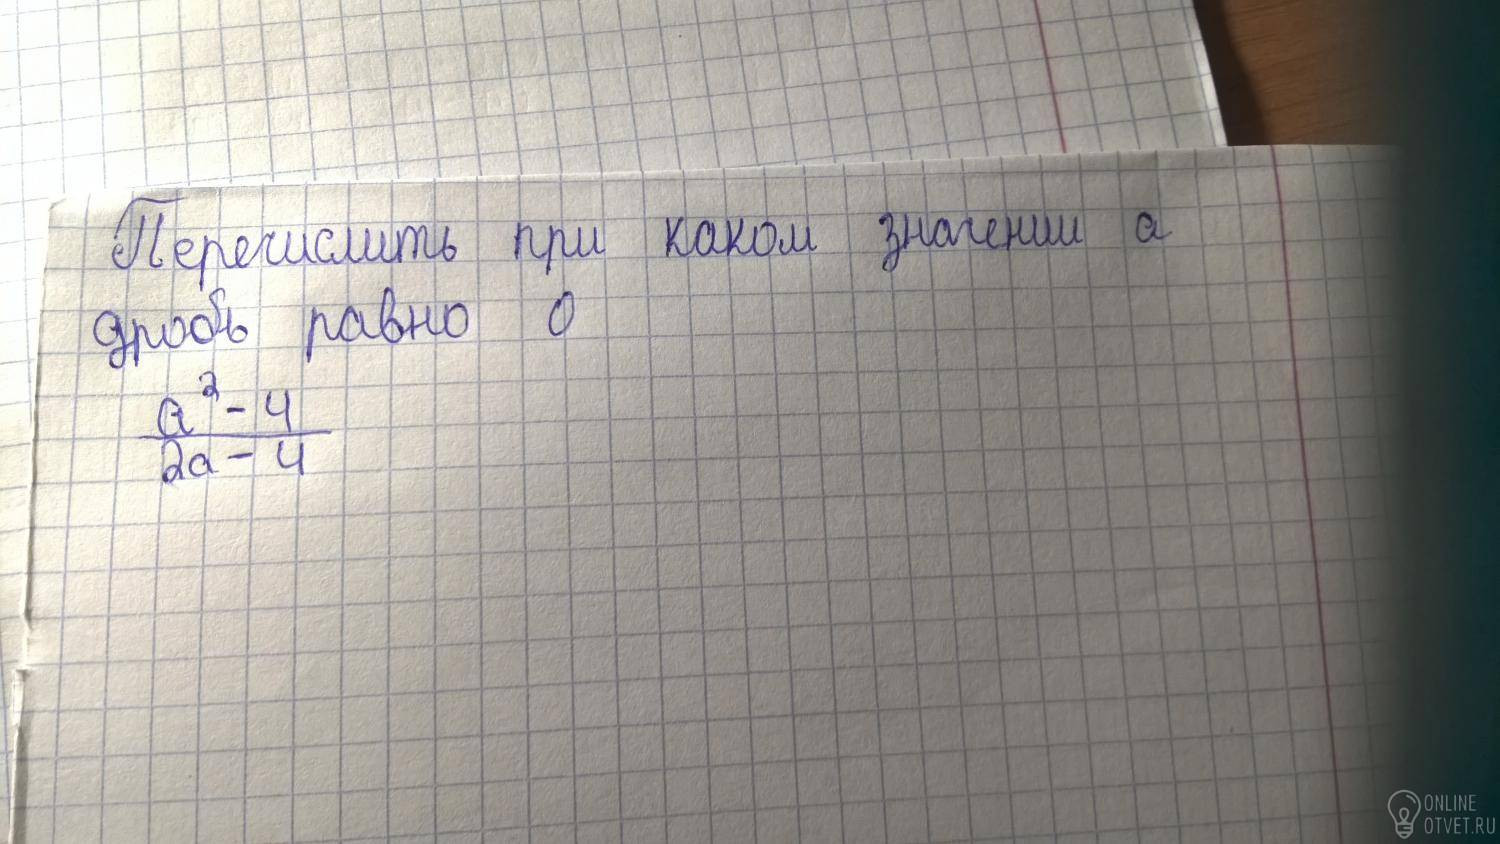 Перечислить при каком значении а
дробь равно 0
a² - 4
2a - 4
ONLINE
OTVET.RU